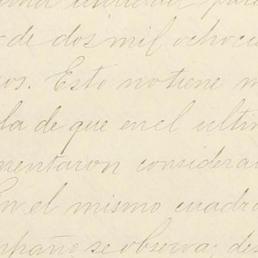 de dos mil ochoci
os. Esto no tiene
la de que en el ultim
mentaron considera
En el mismo cuadro
mpañe se observa; des